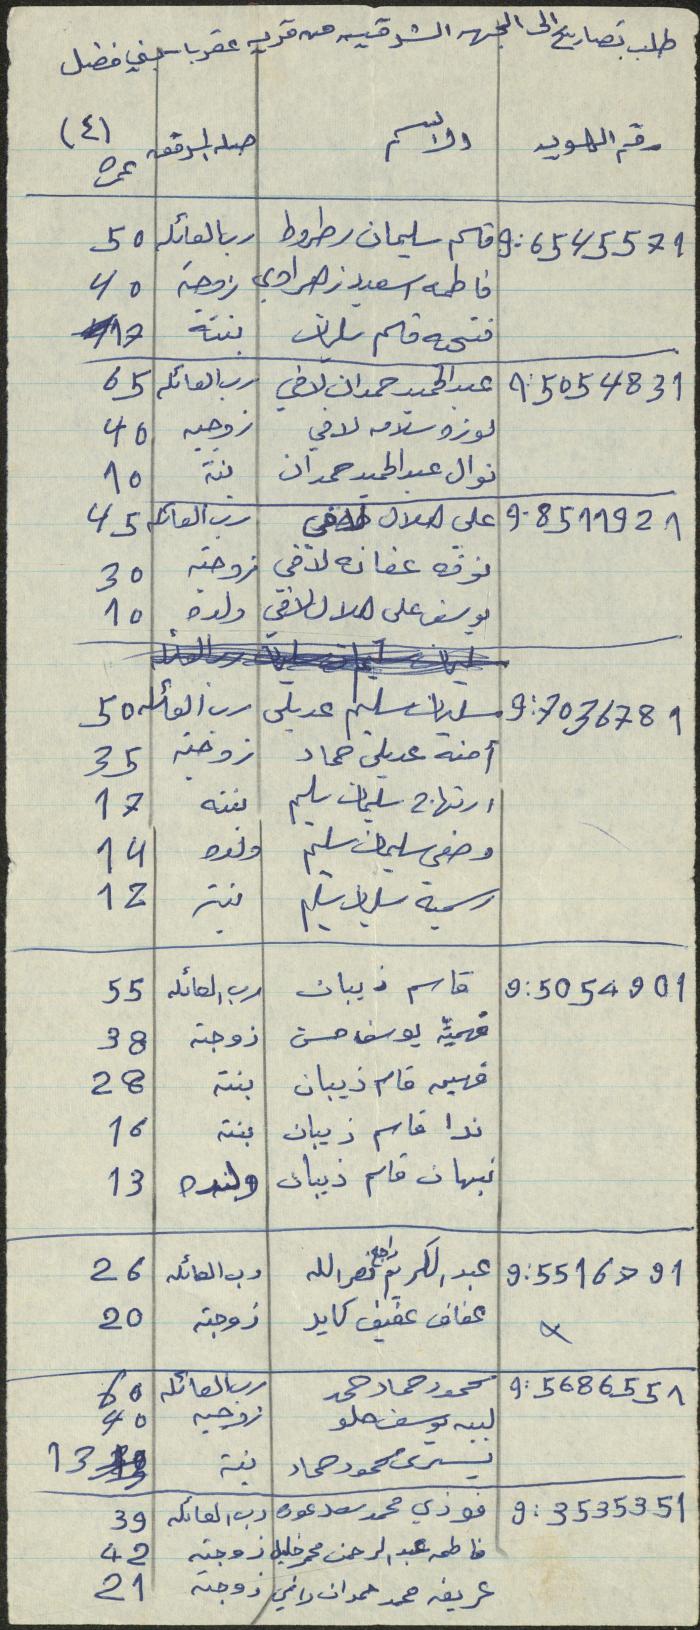 طلب تصاريح الى الجهه الشرقيه من قريه عقربا سيفي فضل
(٤)
رقم الهويه الاسم صله القرابه عمره
9:6545571 قاسم سليمان رطروط رب العائله 50
فاطمه اسعيد زهراوي زوجته 40
فتحيه قاسم سليمان بنته 17
9:5054831 عبد الحميد حمدان لافي رب العائله 65
لوزه سلامه لافي زوجته 40
نوال عبد الحميد حمدان بنته 10
9:8511921 على هلال لافي رب العائله 45
نوفه لافي زوجته 30
يوسف على هلال لافي ولده 10
9:7036781 سليمان سليم عديلي رب العائله 50
أمنه عديلي حماد زوجته 35
سليمان سليم بنته 17
وصفي سليمان سليم ولده 14
رسمية سليمان سليم بنته 12
9:5054901 قاسم ذيبان رب العائله 55
فهميه يوسف حسن زوجته 38
فهيمه قاسم ذيبان بنته 28
ندا قاسم ذيبان بنته 16
نبهان قاسم ذيبان ولده 13
9:5516791 عبد الكريم راجح نصر الله رب العائله 26
عفاف عفيف كايد زوجته 20
9:5686551 محمود حماد حمد رب العائله 60
لبيبه يوسف حلو زوجته 40
يسرى محمود حماد بنته 13
9:3535351 فوزي محمد سعد عوده رب العائله 39
فاطمه عبد الرحمن محمد خليل زوجته 42
عريفه محمد حمدان زوجته 21